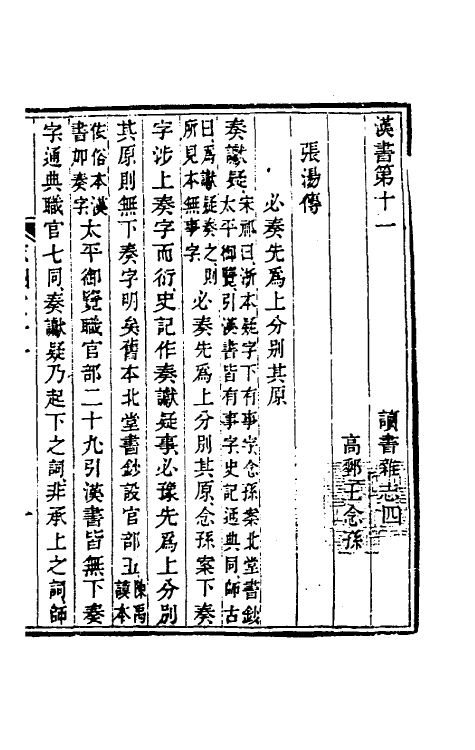 漢書第十一　讀書雜志四
高郵王念孫
張湯傳
必奏先爲上分別其原
奏讞疑宋祁曰浙本疑字下有事字念孫案北堂書鈔
太平御覽引漢書皆有事字史記通典同師古
曰爲讞疑奏之則
所見本無事字必奏先爲上分別其原念孫案下奏
字涉上奏字而衍史記作奏讞疑事必豫先爲上分別
其原則無下奏字明矣舊本北堂書鈔設官部五陳禹
謨本
依俗本漢
書加奏字太平御覽職官部二十九引漢書皆無下奏
字通典職官七同奏讞疑乃起下之詞非承上之詞師